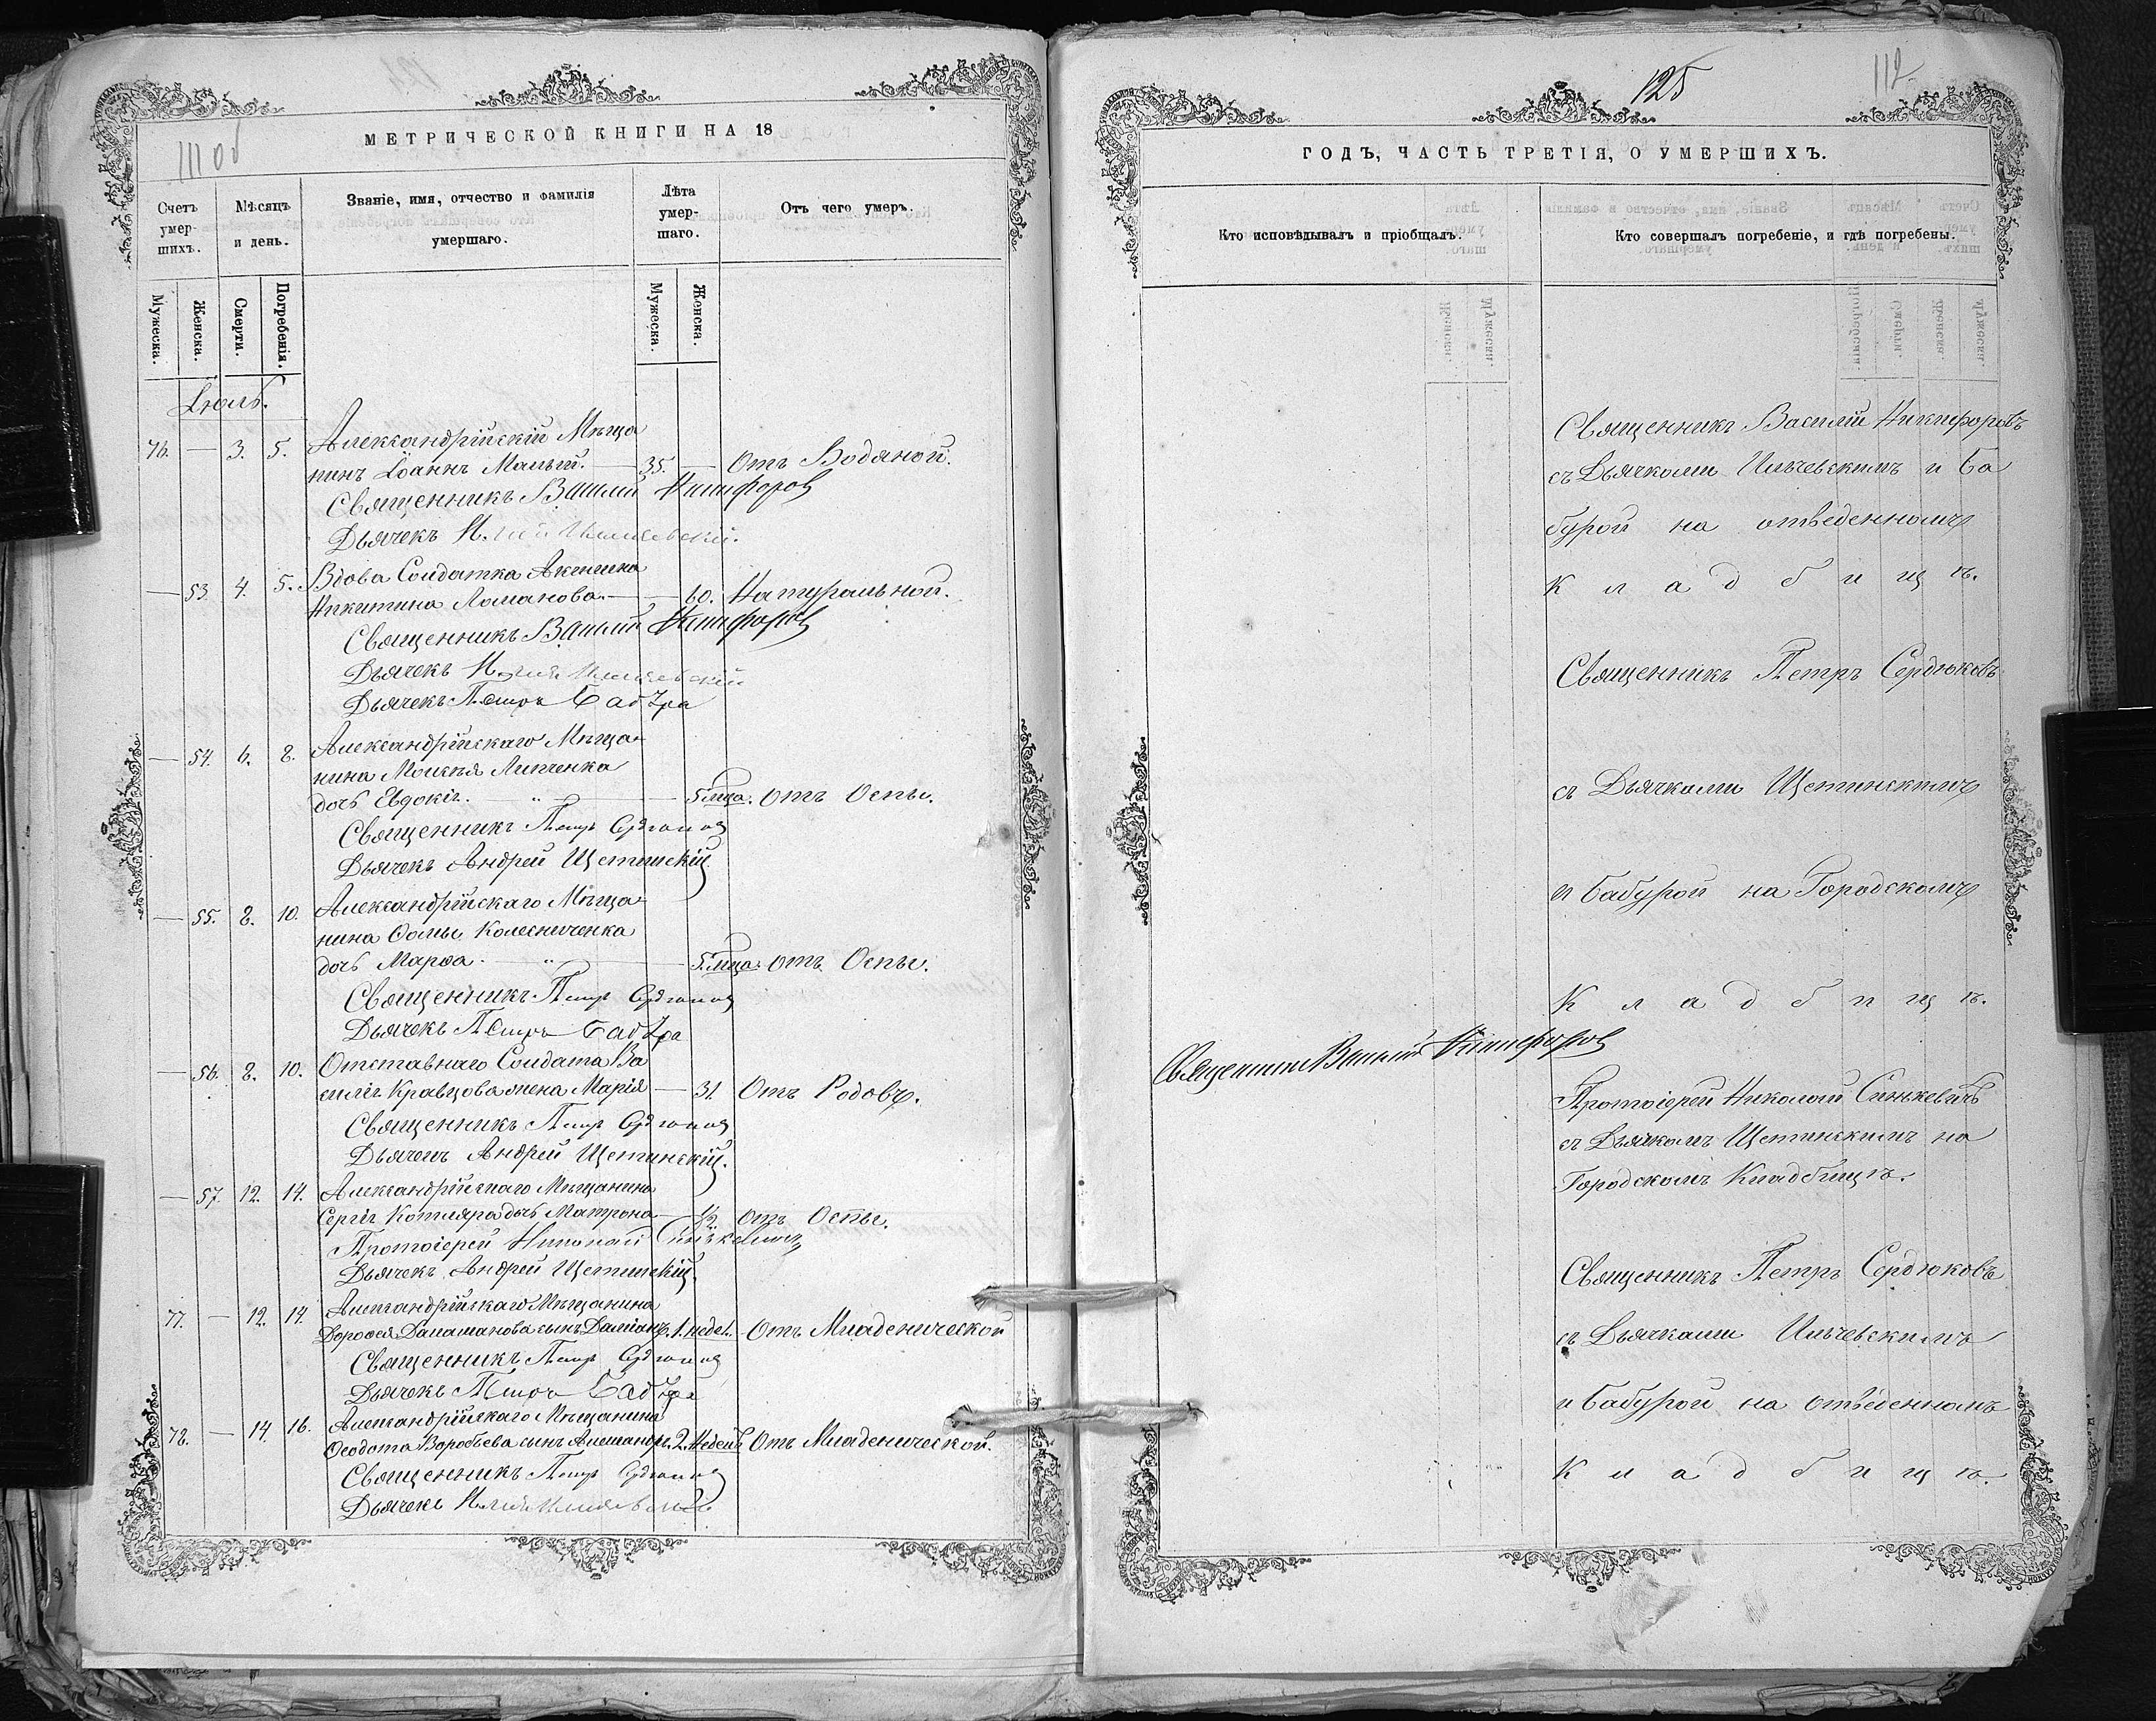 МЕТРИЧЕСКОЙ КНИГИ НА 18
111 об
Счетъ умер-шихъ.
Мѣсяцъ и день.
Званіе, имя, отчество и фамилія умершаго.
Лѣта умер-шаго.
Отъ чего умеръ.
Мужеска.
Женска.
Смерти.
Погребенія.
Мужеска.
Женска.
Іюль.
76. — 3. 5. Александрійскій Мѣща
нинъ Іоаннъ Малый. — 35. — Отъ Водяной.
Священникъ Василій Никифоров
Дьячекъ
— 53. 4. 5. Вдова Солдатка Акилина
Никитина Ломанова. — — 60. Натуральной.
Священникъ Василій Никифоров
Дьячекъ
Дьячекъ Петръ Бабура
— 54. 6. 8. Александрійскаго Мѣща-
нина Моисея Липченка
дочь Евдокія. — „ — 5 мца. Отъ Оспы.
Священникъ Петръ Сердюков
Дьячекъ Андрей Щетинскій
— 55. 8. 10. Александрійскаго Мѣща-
нина Ѳомы Колесниченка
дочь Марѳа. — „ — 5. мца. Отъ Оспы.
Священникъ Петръ Сердюков
Дьячекъ Петръ Бабура
— 56. 8. 10. Отставнаго Солдата Ва
силія Кравцова жена Марія — 31 Отъ Родовъ.
Священникъ Петръ Сердюков
Дьячекъ Андрей Щетинскій.
— 57. 12. 14. Александрійскаго Мѣщанина
Сергія Котляра дочь Матрона — ½ Отъ Оспы.
Протоіерей Николай Синькевичъ
Дьячекъ Андрей Щетинскій
77. — 12. 14. Александрійскаго Мѣщанина
Дороѳея сынъ Даміанъ. 1. недел. Отъ Младенческой
Священникъ Петръ Сердюков
Дьячекъ Петръ Бабура
78. — 14. 16. Александрійскаго Мѣщанина
Ѳеодота Воробьева сынъ Александръ. 2. Недель Отъ Младенческой.
Священникъ Петръ Сердюков
Дьячекъ
125
112
ГОДЪ, ЧАСТЬ ТРЕТІЯ, О УМЕРШИХЪ.
Кто исповѣдывалъ и пріобщалъ.
Кто совершалъ погребеніе, и гдѣ погребены.
Священникъ Василій Никифоровъ
съ Дьячками Ильчевскимъ и Ба
бурой на отведенномъ
Кладбищѣ.
Священникъ Петръ Сердюковъ
съ Дьячками Щетинскимъ
и Бабурой на Городскомъ
Кладбищѣ.
Священник Василій Никифоров
Протоіерей Николай Синькевичъ
съ Дьячкомъ Щетинскимъ на
Городскомъ Кладбищѣ.
Священникъ Петръ Сердюковъ
съ Дьячками Ильчевскимъ
и Бабурой на отведенномъ
Кладбищѣ.